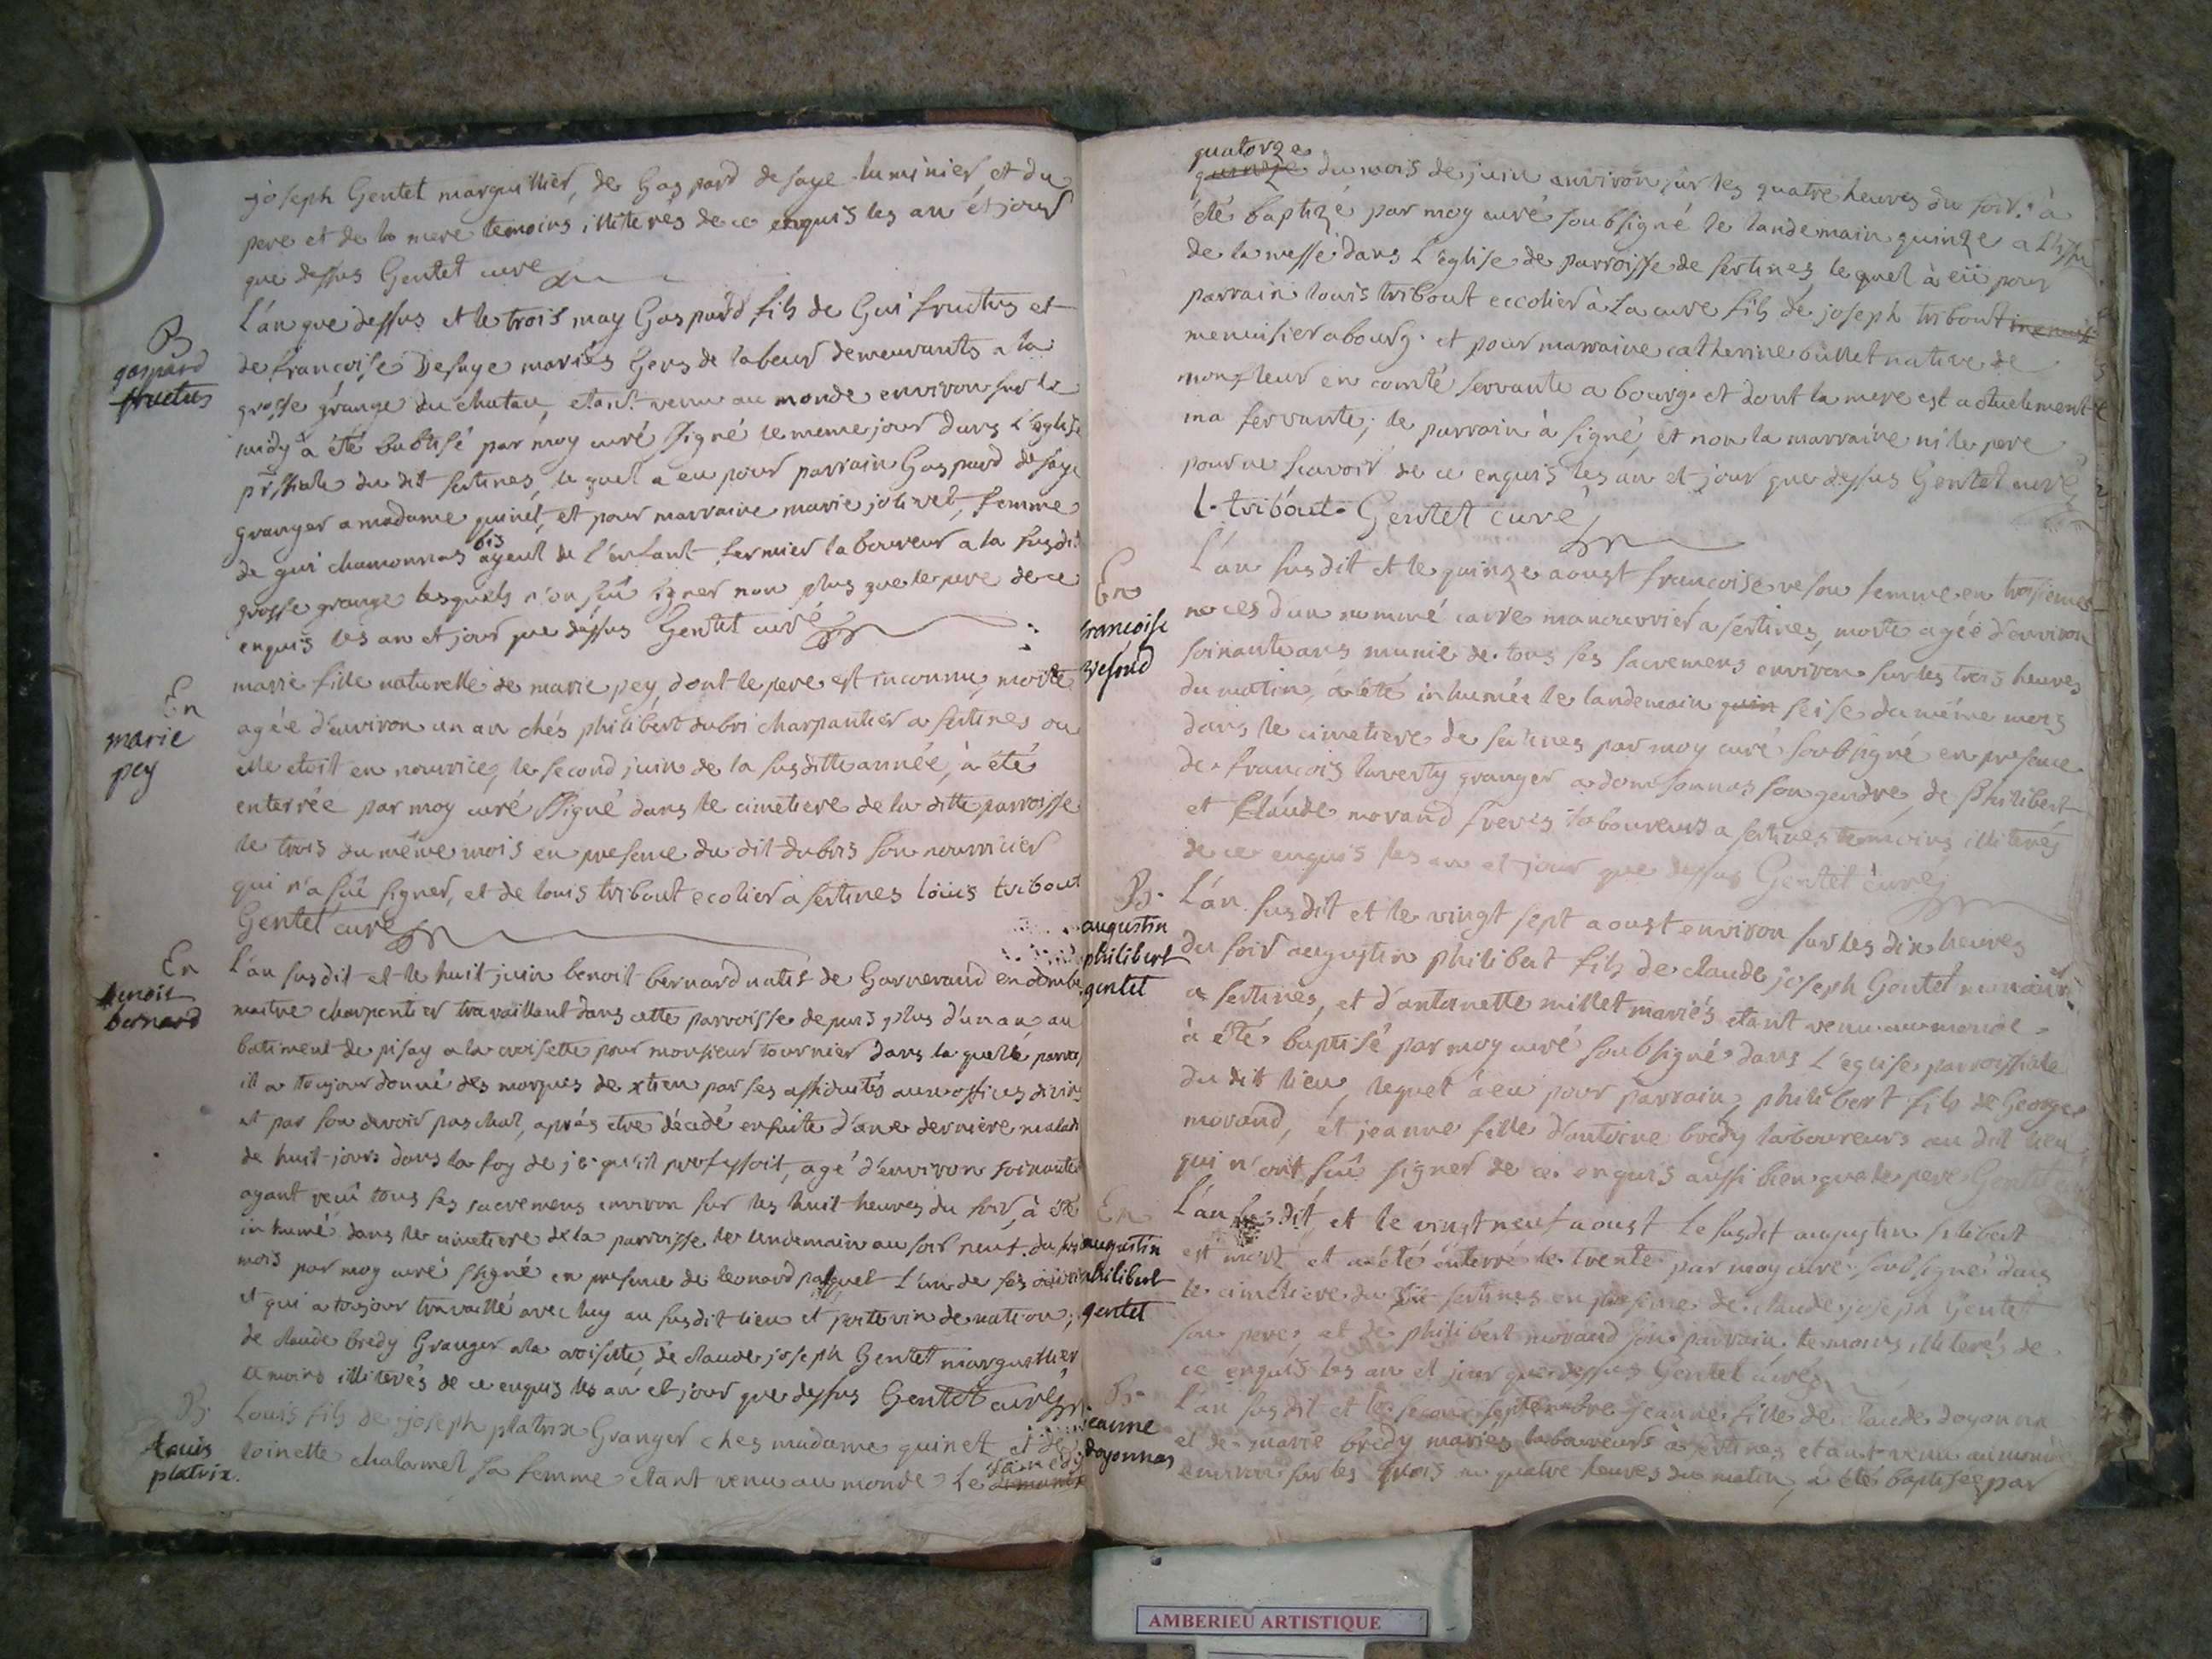 joseph Gentet marguillier, de Gaspard desaye luminier, et du
pere et de la mere temoins illiterés de ce enquis les an et jour
que dessus Gentet cure
B
gaspard
fructus
L'an que dessus et le trois may Gaspard fils de Gui fructus et
de francoise Desaye mariés Gens de labeur demeurants a la
grosse grange du chateau, etant venu au monde environ sur le
midy à été babtisé par moy curé signé le meme jour dans L'eglise
du dit sertines, le quel a eu pour parrain Gaspard desaye
granger a madame quinet, et pour marraine marie jolivet, femme
de gui chamonnas bis ayeul de l'enfant fermier laboureur a la susdit
grosse grange lesquels n'on sçû signer non plus que le pere de ce
enquis les an et jour que dessus Gentet curé
En
marie
pey
marie fille naturelle de marie pey, dont le pere est inconnu, morte
agée d'environ un an chés philibert dubri charpantier a sertines ou
elle etoit en nourrice, le second juin de la susditte année, à été
enterrée par moy curé ssigné dans le cimetiere de la ditte parroisse
le trois du même mois en presence du dit dubris son nourricier
qui n'a sçû signer, et de louis tribout ecolier a sertines loüis tribout
Gentet curé
En
benoit
bernard
L'an susdit et le huit juin benoit bernard natif de Garnerand en dombe
maitre charpentier travaillant dans cette parroisse depuis plus d'un an au
batiment de pisay a la croisette pour monsieur tournier dans la quelle parroi
il a toujour donné des marques de xtien par ses assiduités aux offices divins
et par son devoir paschal, aprés etre décédé ensuite d'une derniere maladi
de huit jours dans la foy de j. qu'il professoit, agé d'environ soixante
ayant reçû tous ses sacremens environ sur les huit heures du soir, à été
inhumé dans le cimetiere de la parroisse le lendemain au soir neuf du
mois par moy curé ssigné en presence de leonard paquet L'un de ses
et qui a toujour travaillé avec luy au susdit lieu et poitevin de nation;
de claude bredy Granger a la croisette, de claude joseph Gentet marguillier
temoins illiterés de ce enquis les an et jour que dessus Gentet curé
B.
louis
platrix.
Louis fils de joseph platrix Granger ches madame quinet et de
toinette chalamel sa femme etant venu au monde Le samedy
quatorze
quinze du mois de juin environ sur les quatre heures du soir. à
été baptizé par moy curé soubsigné le landemain quinze a L'issu
de la messe dans L'eglise de parroisse de sertines, le quel à eü pour
parrain louis tribout eccolier à La cure fils de joseph tribout
menuisier a bourg. et pour marraine catherine bullet native de
monfleur en comté servante a bourg. et dont la mere est actuelement
ma servante; le parrain à signé, et non la marraine ni le pere
pour ne scavoir de ce enquis les an et jour que dessus Gentet curé
l. tribout. Gentet curé
En
francoise
vesond
L'an susdit et le quinze aoust francoise vesou femme en troisiemes
noces d'un nommé carre manouvrier a sertines, morte agée d'environ
soixante ans munie de tous ses sacremens environ sur les trois heures
du matin, à été inhumée le landemain quin seise du même mois
dans le cimetiere de sertines par moy curé soubsigné en presence
de francois laverty granger a domsonnas son gendre, de philibert
et Claude morand freres laboureurs a sertines temoins illiterés
de ce enquis les an et jour que dessus Gentet curé
B.
augustin
philibert
gentet
L'an susdit et le vingt sept aoust environ sur les dix heures
du soir augustin philibert fils de claude joseph Gentet
a sertines, et d'antoinette millet mariés etant venu au monde
à été baptisé par moy curé soubsigné dans L'eglise parroissiale
du dit lieu, lequel à eu pour parrain, philibert fils de George
morand, et jeanne fille d'antoine bredy laboureurs au dit lieu
qui n'ont sçû signer de ce enquis aussi bien que le pere Gentet
En
augustin
philibert
gentet
L'an susdit, et le vingt neuf aoust le susdit augustin filibert
est mort et a été enterré le trente par moy curé soussigné dans
le cimetiere du dit sertines en presence de claude joseph Gentet
son pere, et de philibert morand son parrain temoins illiterés de
ce enquis les an et jour que dessus Gentet curé
B.
jeanne
doyonnas
L'an susdit et le second septembre jeanne fille de claude doyonnas
et de marie bredy mariés laboureurs à sertines etant venu au monde
environ sur les trois ou quatre heures du matin, a été baptisée par
AMBERIEU ARTISTIQUE